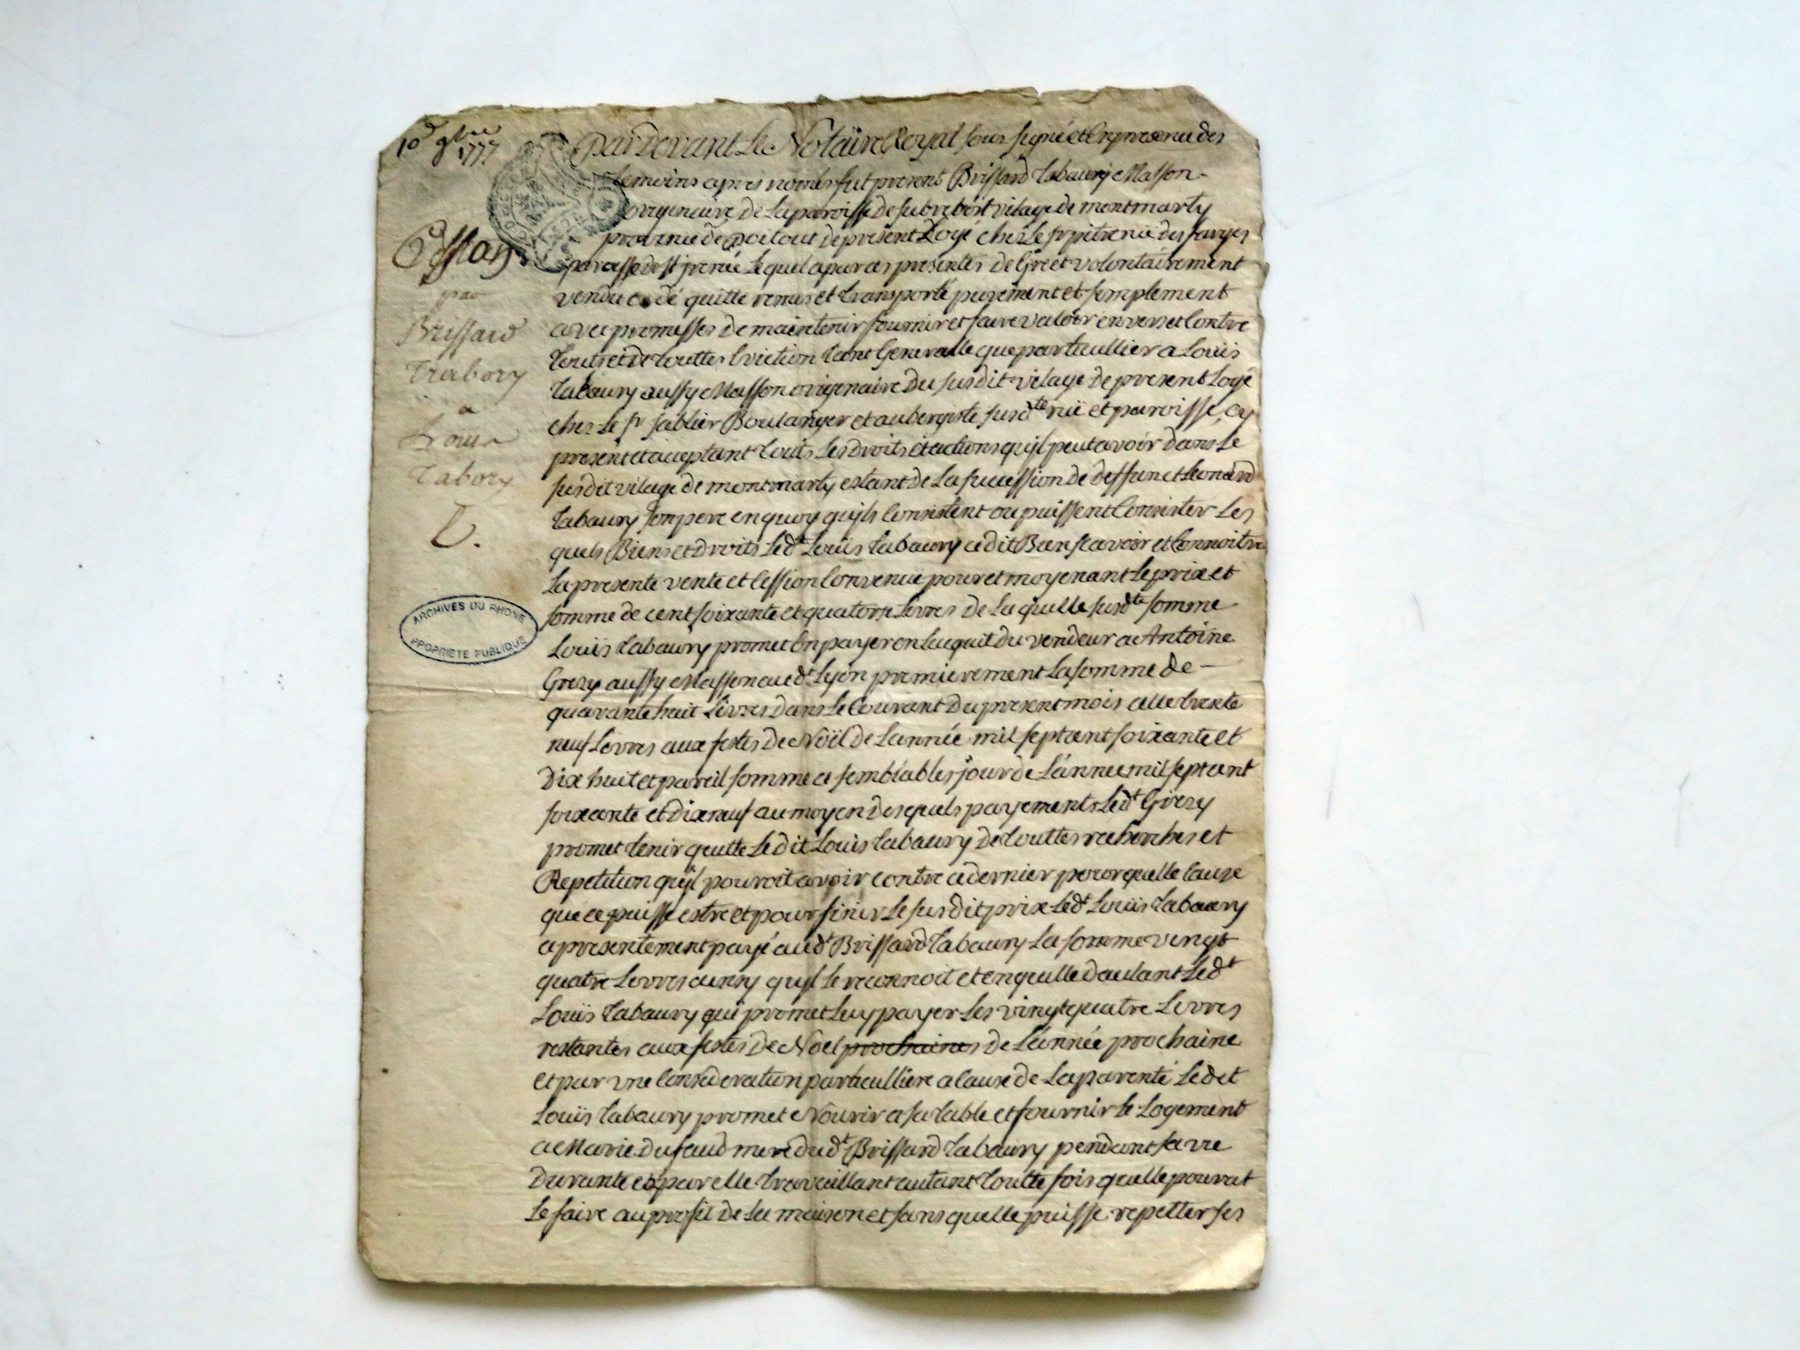 10 9bre
1777
Cession
par
Brissard
Trabory
a
Louis
Tabory
ARCHIVES DU RHONE
PROPRIETE PUBLIQUE
Pardevant Le Notaire Royal sous signé et En presence des
temoins apres només fut present Brissard tabaury Masson
origenaire De La paroisse de vilage de montmarty
province de poitout de present Logé chez Le sr des farges
paroisse de st jrenée Le quel a par ces presentes de Gré et volontairement
vendu cedé quitte remis et transporté purement et simplement
avec promesses De maintenir fournir et faire valoir envers et Contre
touts et de touttes Eviction tant Generalle que particullier a Louis
tabaury aussy Masson origenaire Du susdit vilage De present Logé
chez Le sr sablier Boulanger et aubergiste susdte rüe et paroisse, cy
present et aceptant touts Les Droits et actions qujl peut avoir dans Le
susdit vilage de montmarty estant de La sucession de deffunct Leonard
tabaury son pere en quoy qujls Consistent ou puissent Consister Les
quels Biens et Droits Ledt Louis tabaury a dit Bien scavoir et Connoitre
La presente vente et Cession Convenue pour et moyenant Le prix et
somme de cent soixante et quatorse Livres De La quelle susdte somme
Louis tabaury promet En payer en Lacquit Du vendeur a Antoine
Grezy aussy Masson audt Lyon premierement La somme de
quarante huit Livres Dans Le Courant Du present mois celle trente
neuf Livres aux festes De Noël de Lannée mil sept cent soixante et
Dix huit et pareil somme a semblables jour de Lannee mil sept cent
soixcente et Dix neuf au moyen Des quels payements Ledt Grezy
promet tenir quitte Le dit Louis tabaury De touttes recherches et
Repetition qujl pouroit avoir contre ce dernier pour quelle Cause
que ce puisse estre et pour finir Le susdit prix Ledt Louis tabaury
a presentement payé audt Brissard tabaury La somme vingt
quatre Livres ainsy qujl Le reconnoit et en quitte Dautant Ledt
Louis tabaury qui promet Luy payer Les vingt quatre Livres
restantes aux festes De Noel prochaines De Lannée prochaine
Et par vne Consideration particulliere a Cause De La parenté Ledit
Louis tabaury promet Nourir a sa table et fournir Le Logement
a Marie Dufaud mere dudt Brissard tabaury pendant sa vie
Durante et par elle travaillant autant toutte fois quelle pourat
Le faire au profit De La maison et sans quelle puisse repetter ses